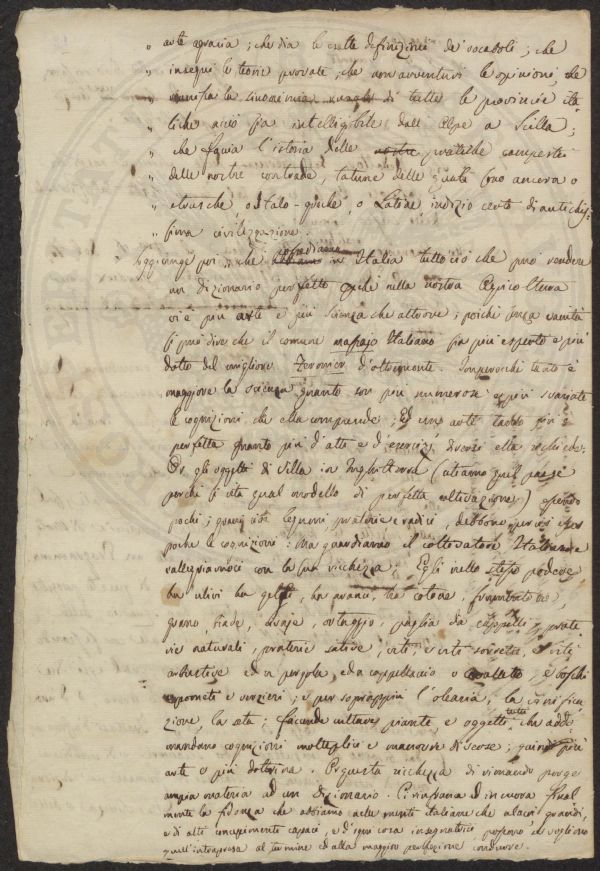 " arte agraria; che dia le esatte definizioni de' vocaboli; che
" insegni le teorie provate; che non avventuri le opinioni, che
" riunisca la sinonimia di tutte le provincie ita
" liche acciò sia intelligibile dall'Alpe a Scilla;
" che faccia l'istoria delle nostre pratiche campestri
" delle nostre contrade, talune delle quali sono ancora o
" etrusche o Italo-greche, o Latine, indizio certo di antichis-
" sima civilizzazione.
Aggiunge poi, che in Italia tutto ciò che può rendere
un dizionario perfetto nella nostra Agricoltura
vi è più arte e più scienza che altrove; poichè senza vanità
si può dire che il comune massajo Italiano sia più esperto e più
dotto del migliore d'oltremonte. Imperocchè tanto è
maggiore la scienza quanto son più numerose e più svariate
le cognizioni che ella comprende; Ed un'arte tanto più è
perfetta quanto più d'atti e d'esercizi diversi ella richiede.
Or gli oggetti di villa in Inghilterra (citiamo quel paese
perchè si cita qual modello di perfetta coltivazione) essendo
pochi; legumi, praterie e radici, debbono esser
poche le cognizioni: Ma guardiamo il coltivatore Italiano e
rallegriamoci con la sua ricchezza; Egli nello stesso podere
ha ulivi ha gelsi, ha aranci, ha cotone, frumentone,
grano, biade, ortaggio, paglia da cappelli, prate
rie naturali, praterie sative, viti
arbustive ed a pergola, ed a cappellaccio o e boschi
e verzieri; e per soprappiù l'olearia, la vinifica-
zione, la seta; faccende culture piante, e oggetti tutti che addi
mandano cognizioni molteplici e manovre diverse; quindi più
arte e più dottrina. E questa ricchezza di rimando porge
ampia materia ad un dizionario. Ci rinfranca ed incuora final
mente la fidanza che abbiamo nelle menti italiane che a lavori grandi,
e di alti concepimenti capaci, e d'ogni cosa insegnatrici, possono e vogliono
quell'intrapresa al termine ed alla maggior perfezione condurre.